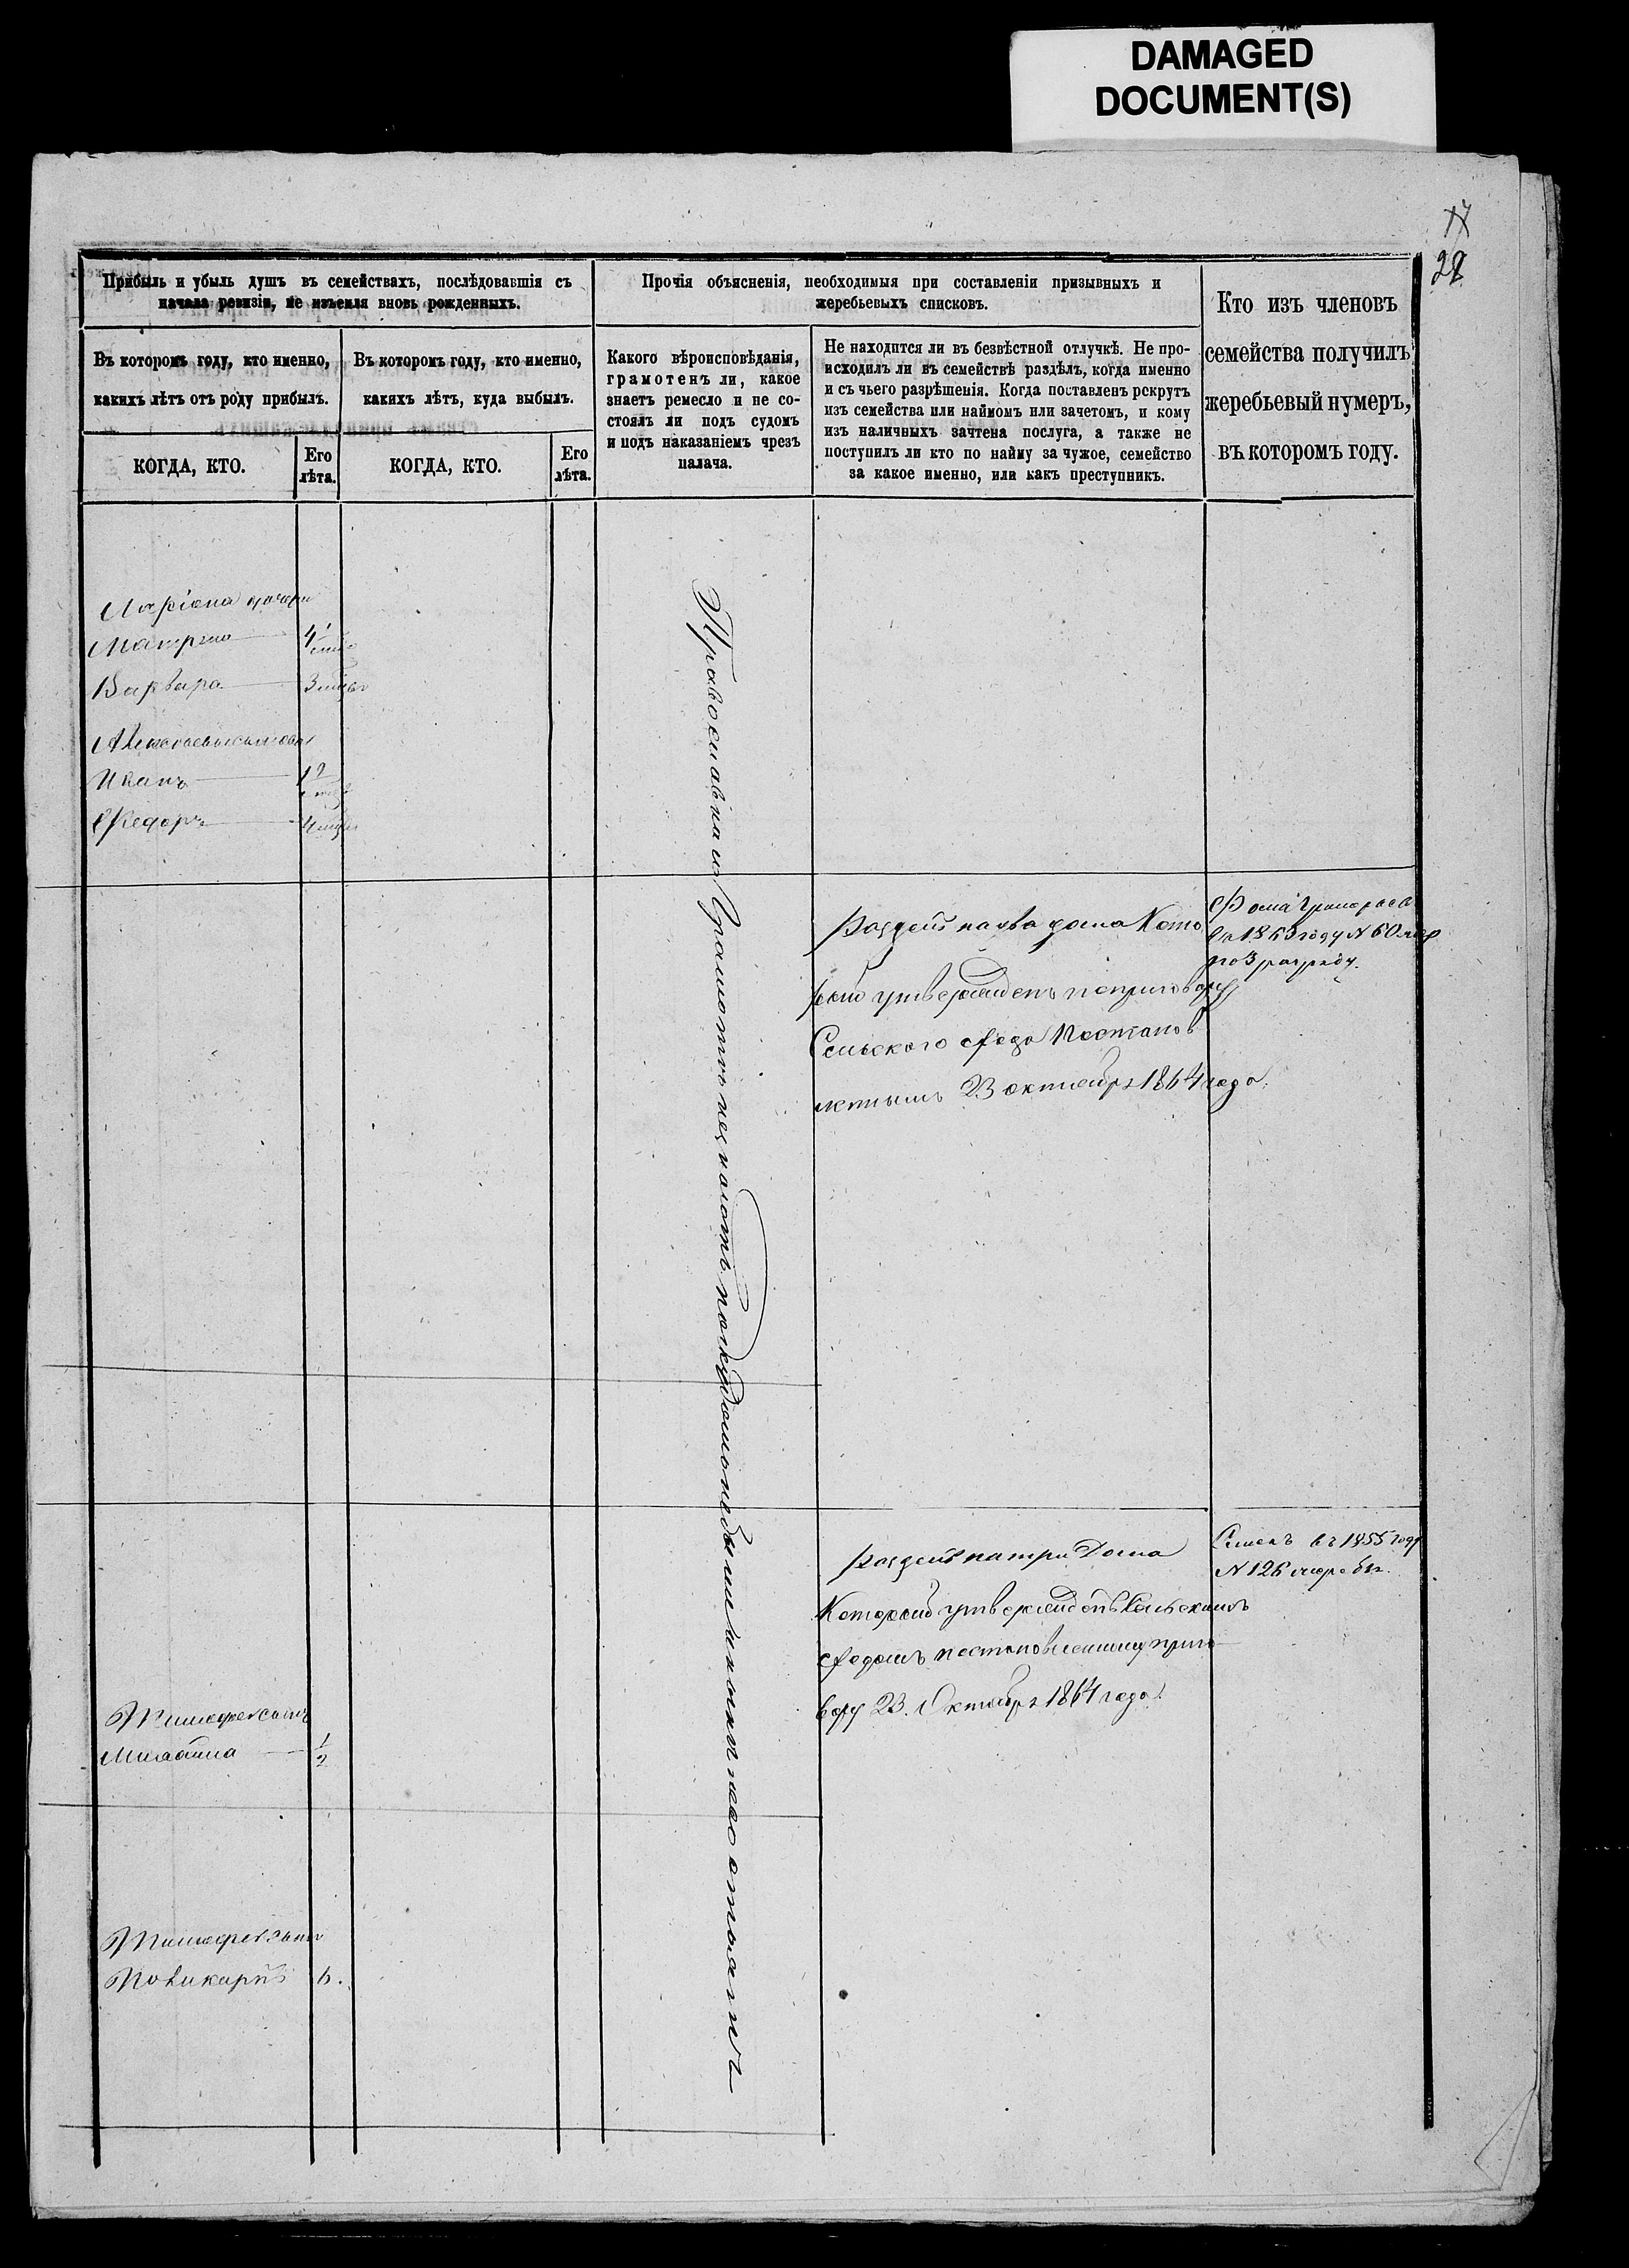 DAMAGED
DOCUMENT(S)
17
22
Прибыль и убыль душъ въ семействахъ, послѣдовавшія съ
начала ревизіи, не изъемля вновь рожденныхъ.
Прочія объясненія, необходимыя при составленіи призывныхъ и
жеребьевыхъ списковъ.
Кто изъ членовъ
семейства получилъ
жеребьевый нумеръ,
въ которомъ году.
Въ которомъ году, кто именно,
какихъ лѣтъ отъ роду прибылъ.
Въ которомъ году, кто именно,
какихъ лѣтъ, куда выбылъ.
Какого вѣроисповѣданія,
грамотенъ ли, какое
знаетъ ремесло и не со-
стоялъ ли подъ судомъ
и подъ наказаніемъ чрезъ
палача.
Не находится ли въ безвѣстной отлучкѣ. Не про-
исходилъ ли въ семействѣ раздѣлъ, когда именно
и съ чьего разрѣшенія. Когда поставленъ рекрутъ
изъ семейства или наймомъ или зачетомъ, и кому
изъ наличныхъ зачтена послуга, а также не
поступилъ ли кто по найму за чужое, семейство
за какое именно, или какъ преступникъ.
КОГДА, КТО.
Его
лѣта.
КОГДА, КТО.
Его
лѣта.
Ларіона дочери
Матрена
Варвара 3
Иванъ
Федоръ 4
Православная Грамоть незнаютъ подсудомъ небыли
Раздел на два дома Кото
рый утвержденъ поприговору
Сельского схода Постанов
леннымъ 23 октября 1864 года.
Фома
въ 1863 году N 60 жер
по 3 разряду.
Раздел натри Дома
Который утвержденъ Сельскимъ
сходомъ постановленному приго
вору 23. Октября 1864 года.
Семенъ въ 1855 году
N 126 жеребья.
Тимофея сынъ
Михайла 1/2
Тимофея сынъ
Поликарпъ 6.